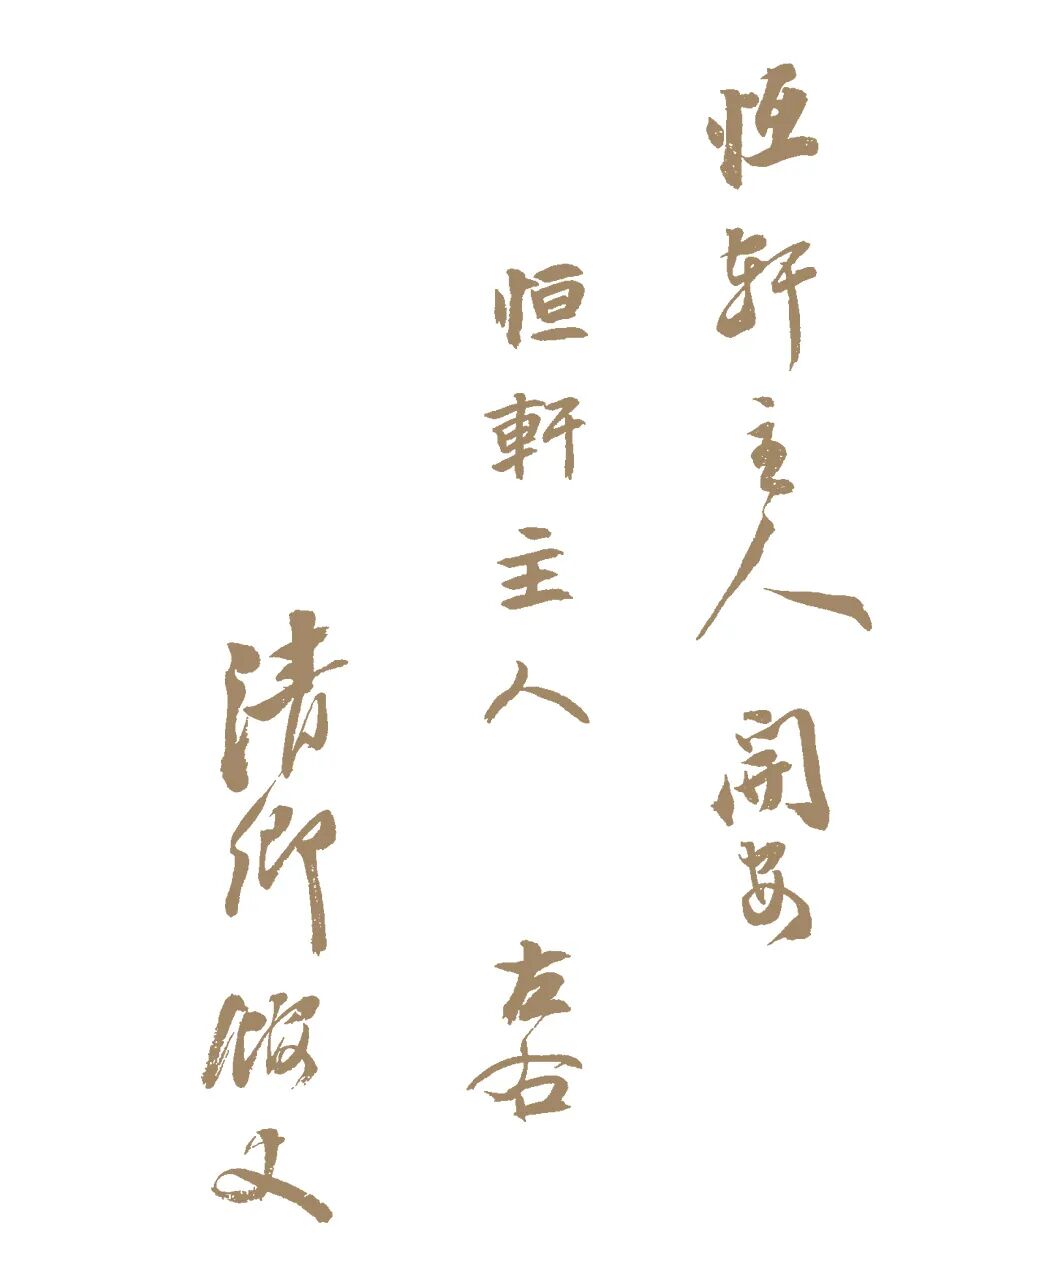 恆軒主人 開安
恒軒主人 左右
清卿 丈